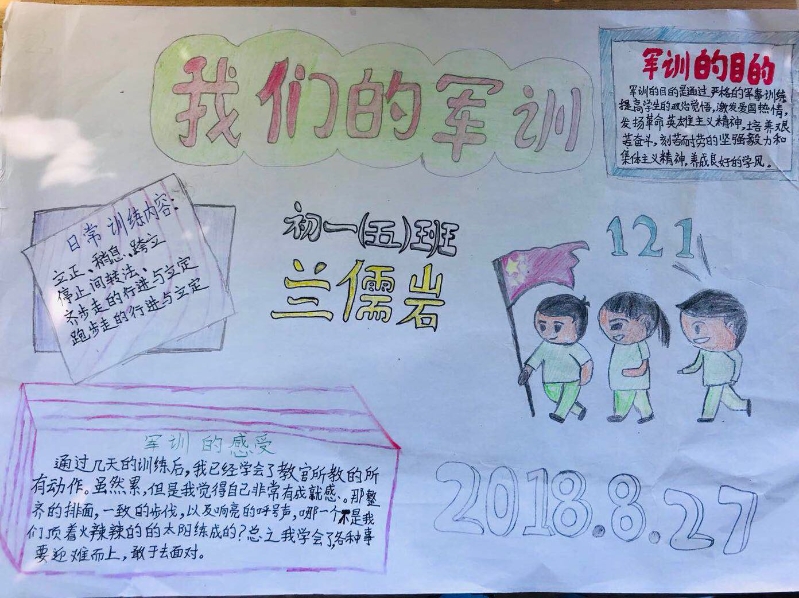 我们的军训
军训的目的
军训的目的是通过严格的军事训练
提高学生的政治觉悟,激发爱国热情,
发扬革命英雄主义精神,培养艰
苦奋斗,刻苦耐劳的坚强毅力和
集体主义精神,养成良好的学风。
日常训练内容:
立正、稍息、跨立
停止间转法、
齐步走的行进与立定
跑步走的行进与立定
初一(五)班
兰儒岩
121
军训的感受
通过几天的训练后,我已经学会了教官所教的所
有动作。虽然累,但是我觉得自己非常有成就感。那整
齐的排面,一致的步伐,以及响亮的呼号声,哪一个不是我
们顶着火辣辣的的太阳练成的?总之我学会了,各种事
要迎难而上,敢于去面对。
2018.8.27